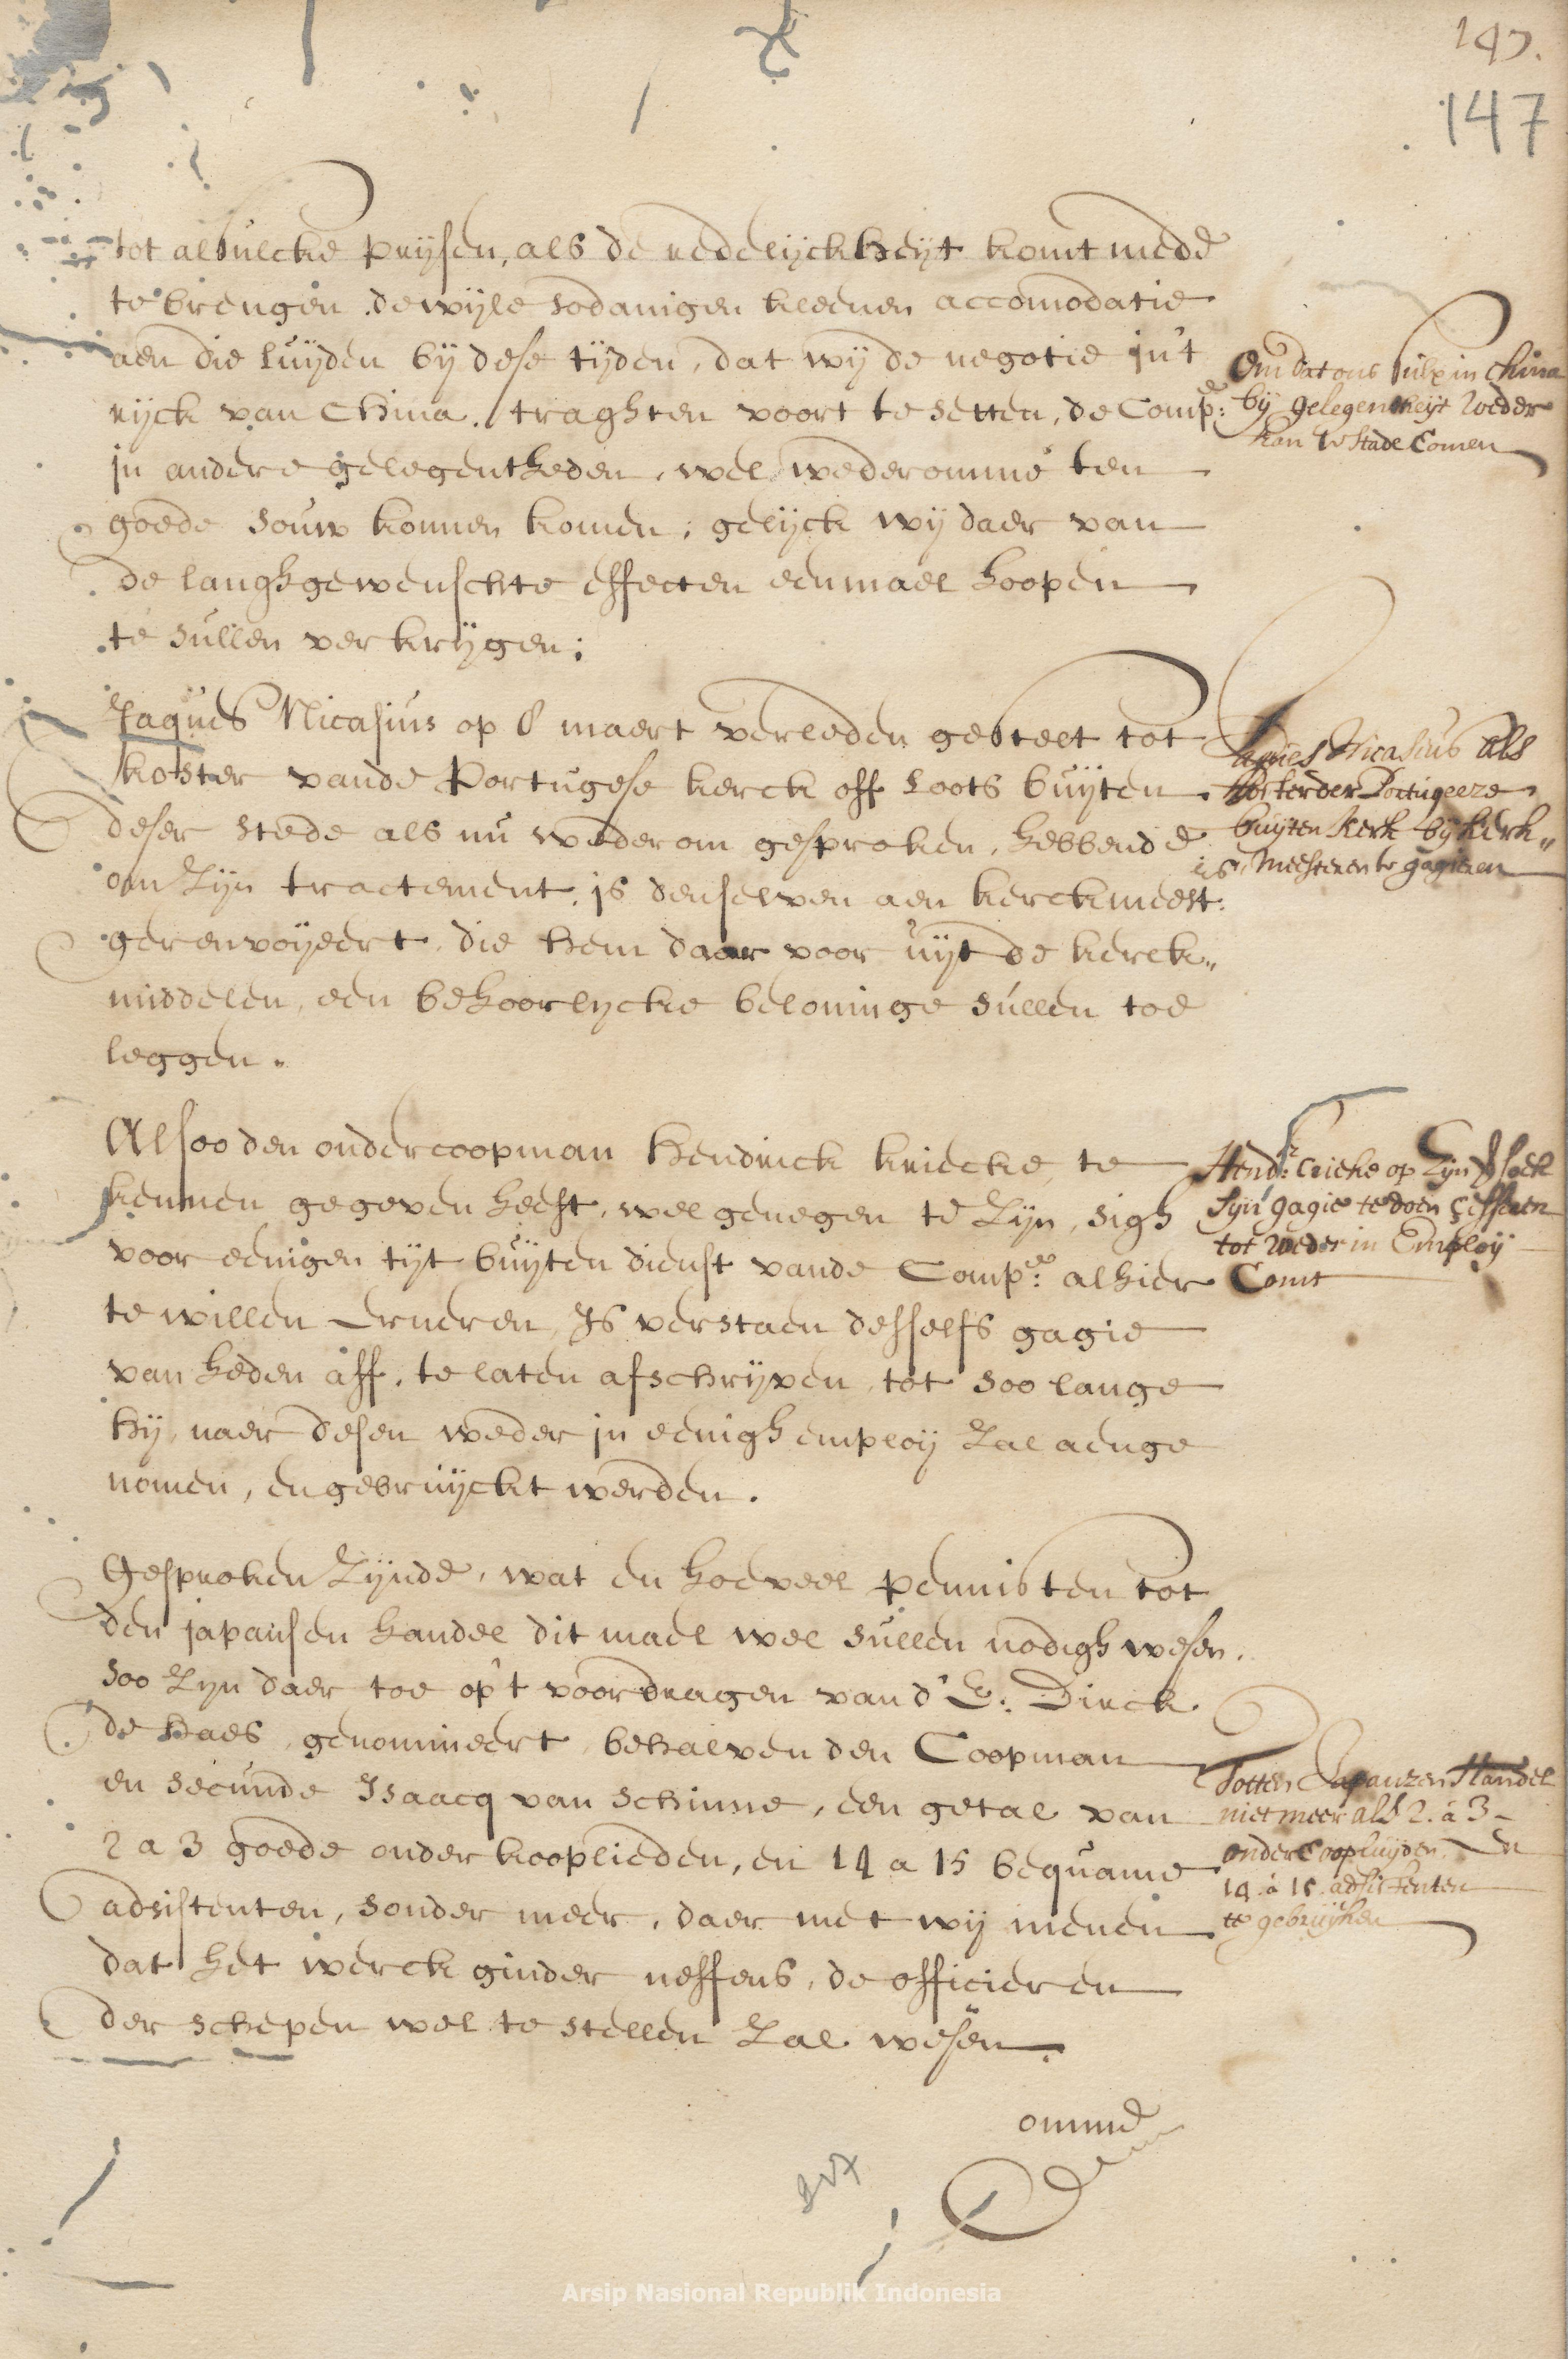 147.
147
tot alsulcke prijsen, als de redelijckheijt komt mede
te brengen. dewijle sodanigen kleenen accomodatie
aen die luijden bij dese tijden, dat wij de negotie in't
rijck van China. traghten voort te setten, de Compe:
in andere gelegentheden, wel wederomme ten
goede souw konnen komen, gelijck wij daer van
de langhgewenschte effecten eenmael hoopen
te sullen verkrijgen;
Om dat ons sulx in China
bij gelegentheijt weder
kan te stade Comen
Jaques Nicasius op 8 maert verleeden gestelt tot
koster vande Portugese kerck off Loots buijten
deser stede als nu wederom gesproken, hebbende
om zijn tractement, is denselven aen kerckmeest:
gerenvoijeert, die hem daar voor uijt de kerck„
middelen, een behoorlijcke beloninge sullen toe
leggen.
Jaques Nicasius als
koster der Portugeeze
buijten kerk bij kerk„
is Meesteren te gagieren
Alsoo den ondercoopman Hendrick kriecke, te
kennen gegeven heeft, wel genegen te zijn, sigh
voor eenigen tijt buijten dienst vande Compe: alhier
te willen erneren, Is verstaen desselfs gagie
van heden aff, te laten afschrijven, tot soo lange
hij, naer desen weder in eenigh employ zal aenge
nomen, en gebruijckt werden.
Hendr: Crieke op zijn versoek
sijn gagie te doen cesseren
tot weder in Employ
Comt
Gesproken zijnde, wat en hoeveel pennisten tot
den japansen handel dit mael wel sullen nodigh wesen,
soo zijn daer toe op't voordragen van d' E: Dirck
de Haes, genomineert, behalven den Coopman
en secunde Isaacq van Schinne, een getal van
2 a 3 goede onder kooplieden, en 14 a 15 bequame
adsistenten, sonder meer, daer met wij menen
dat het werck ginder neffens, de officieren
der schepen wel te stellen zal wesen.
Totten Japanzen Handel
niet meer als 2. à 3
onder Coopluijden, En
14. à 15. adsistenten
te gebruijken
omme
Arsip Nasional Republik Indonesia